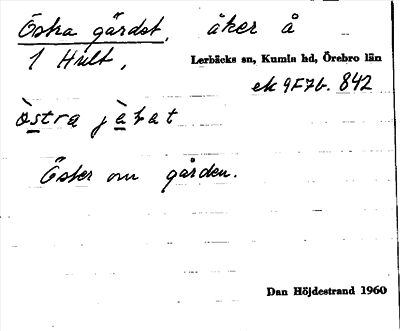 Östra gärdet, åker å
1 Hult, Lerbäcks sn, Kumla hd, Örebro län
ek 9F7b. 842
ö̀stra jàʈat
Öster om gården.
Dan Höjdestrand 1960